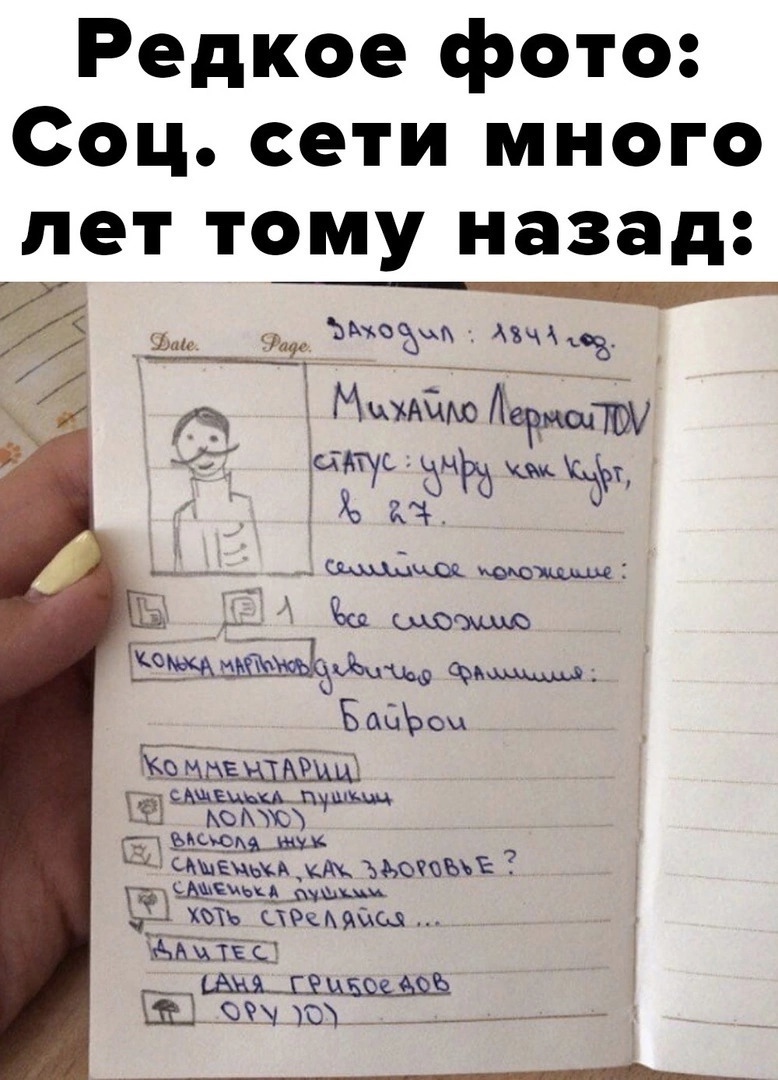 Редкое фото:
Соц. сети много
лет тому назад:
Date. Page. Заходил : 1841 год.
Михайло ЛермонTOV
статус : умру как Курт,
в 27.
семейное положение :
1 все сложно
Колька Мартынов девичья фамилия :
Байрон
Комментарии
Сашенька Пушкин
ЛОЛ))0)
Васьоля Жук
Сашенька, как здоровье ?
Сашенька Пушкин
хоть стреляйся ...
ДАнТЕС
Саня Грибоедов
ОРУ )0)